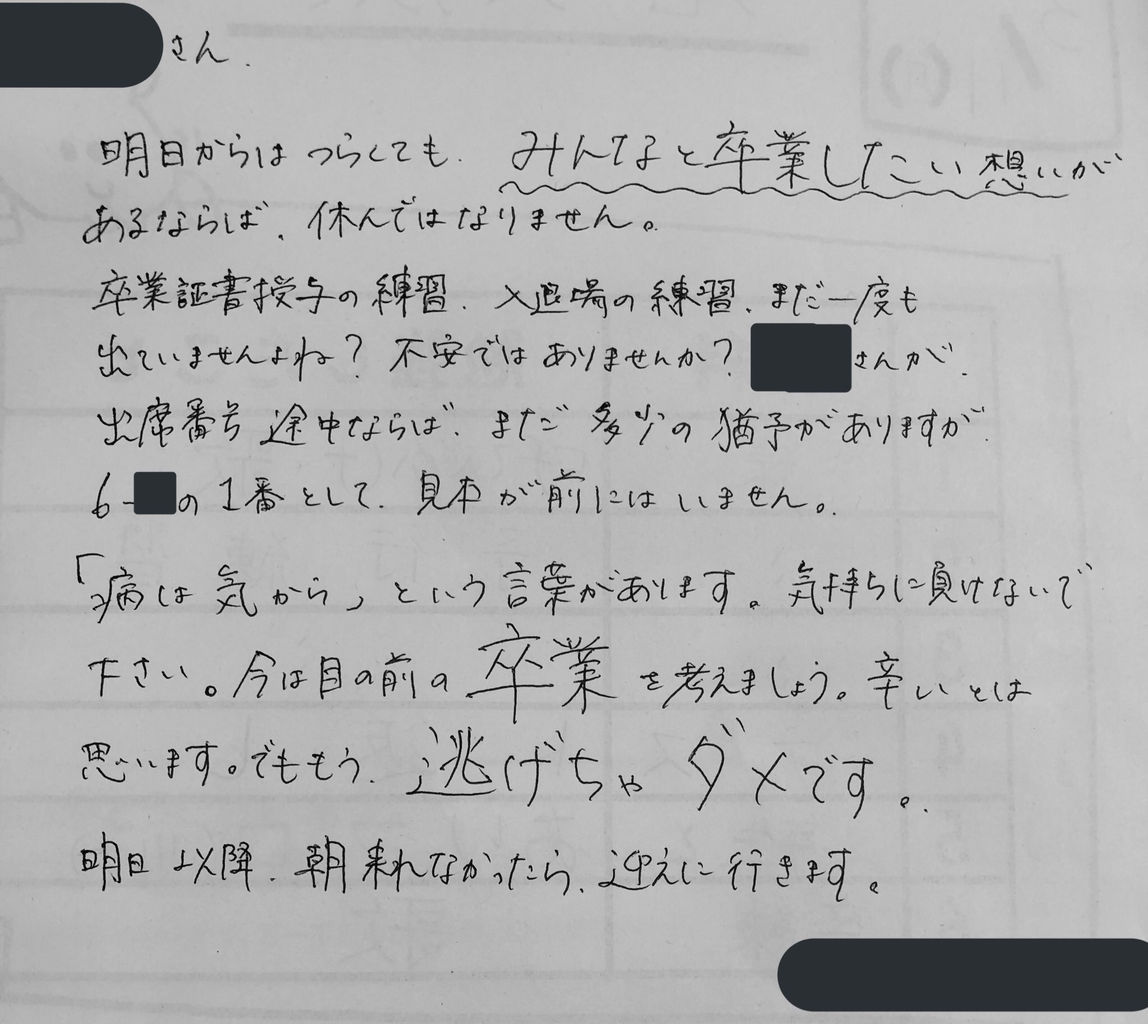 さん.
明日からは つらくても、みんなと卒業したい想いが
あるならば、休んではなりません。
卒業証書授与の練習、入退場の練習、まだ一度も
出ていませんよね?不安ではありませんか? さんが、
出席番号 途中ならば、まだ 多少の 猶予がありますが、
6-の 1番として、見本が前にはいません。
「病は気から」という言葉があります。気持ちに負けないで
下さい。今は目の前の卒業を考えましょう。辛いとは
思います。でももう、逃げちゃダメです。
明日以降、朝来れなかったら、迎えに行きます。